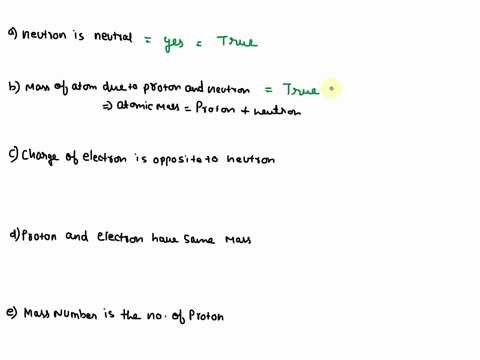 a) Neutron is neutral = yes = True
b) Mass of atom due to proton and neutron = True
⇒ Atomic Mass = Proton + neutron
c) Charge of electron is opposite to neutron
d) Proton and electron have same mass
e) Mass Number is the no. of Proton